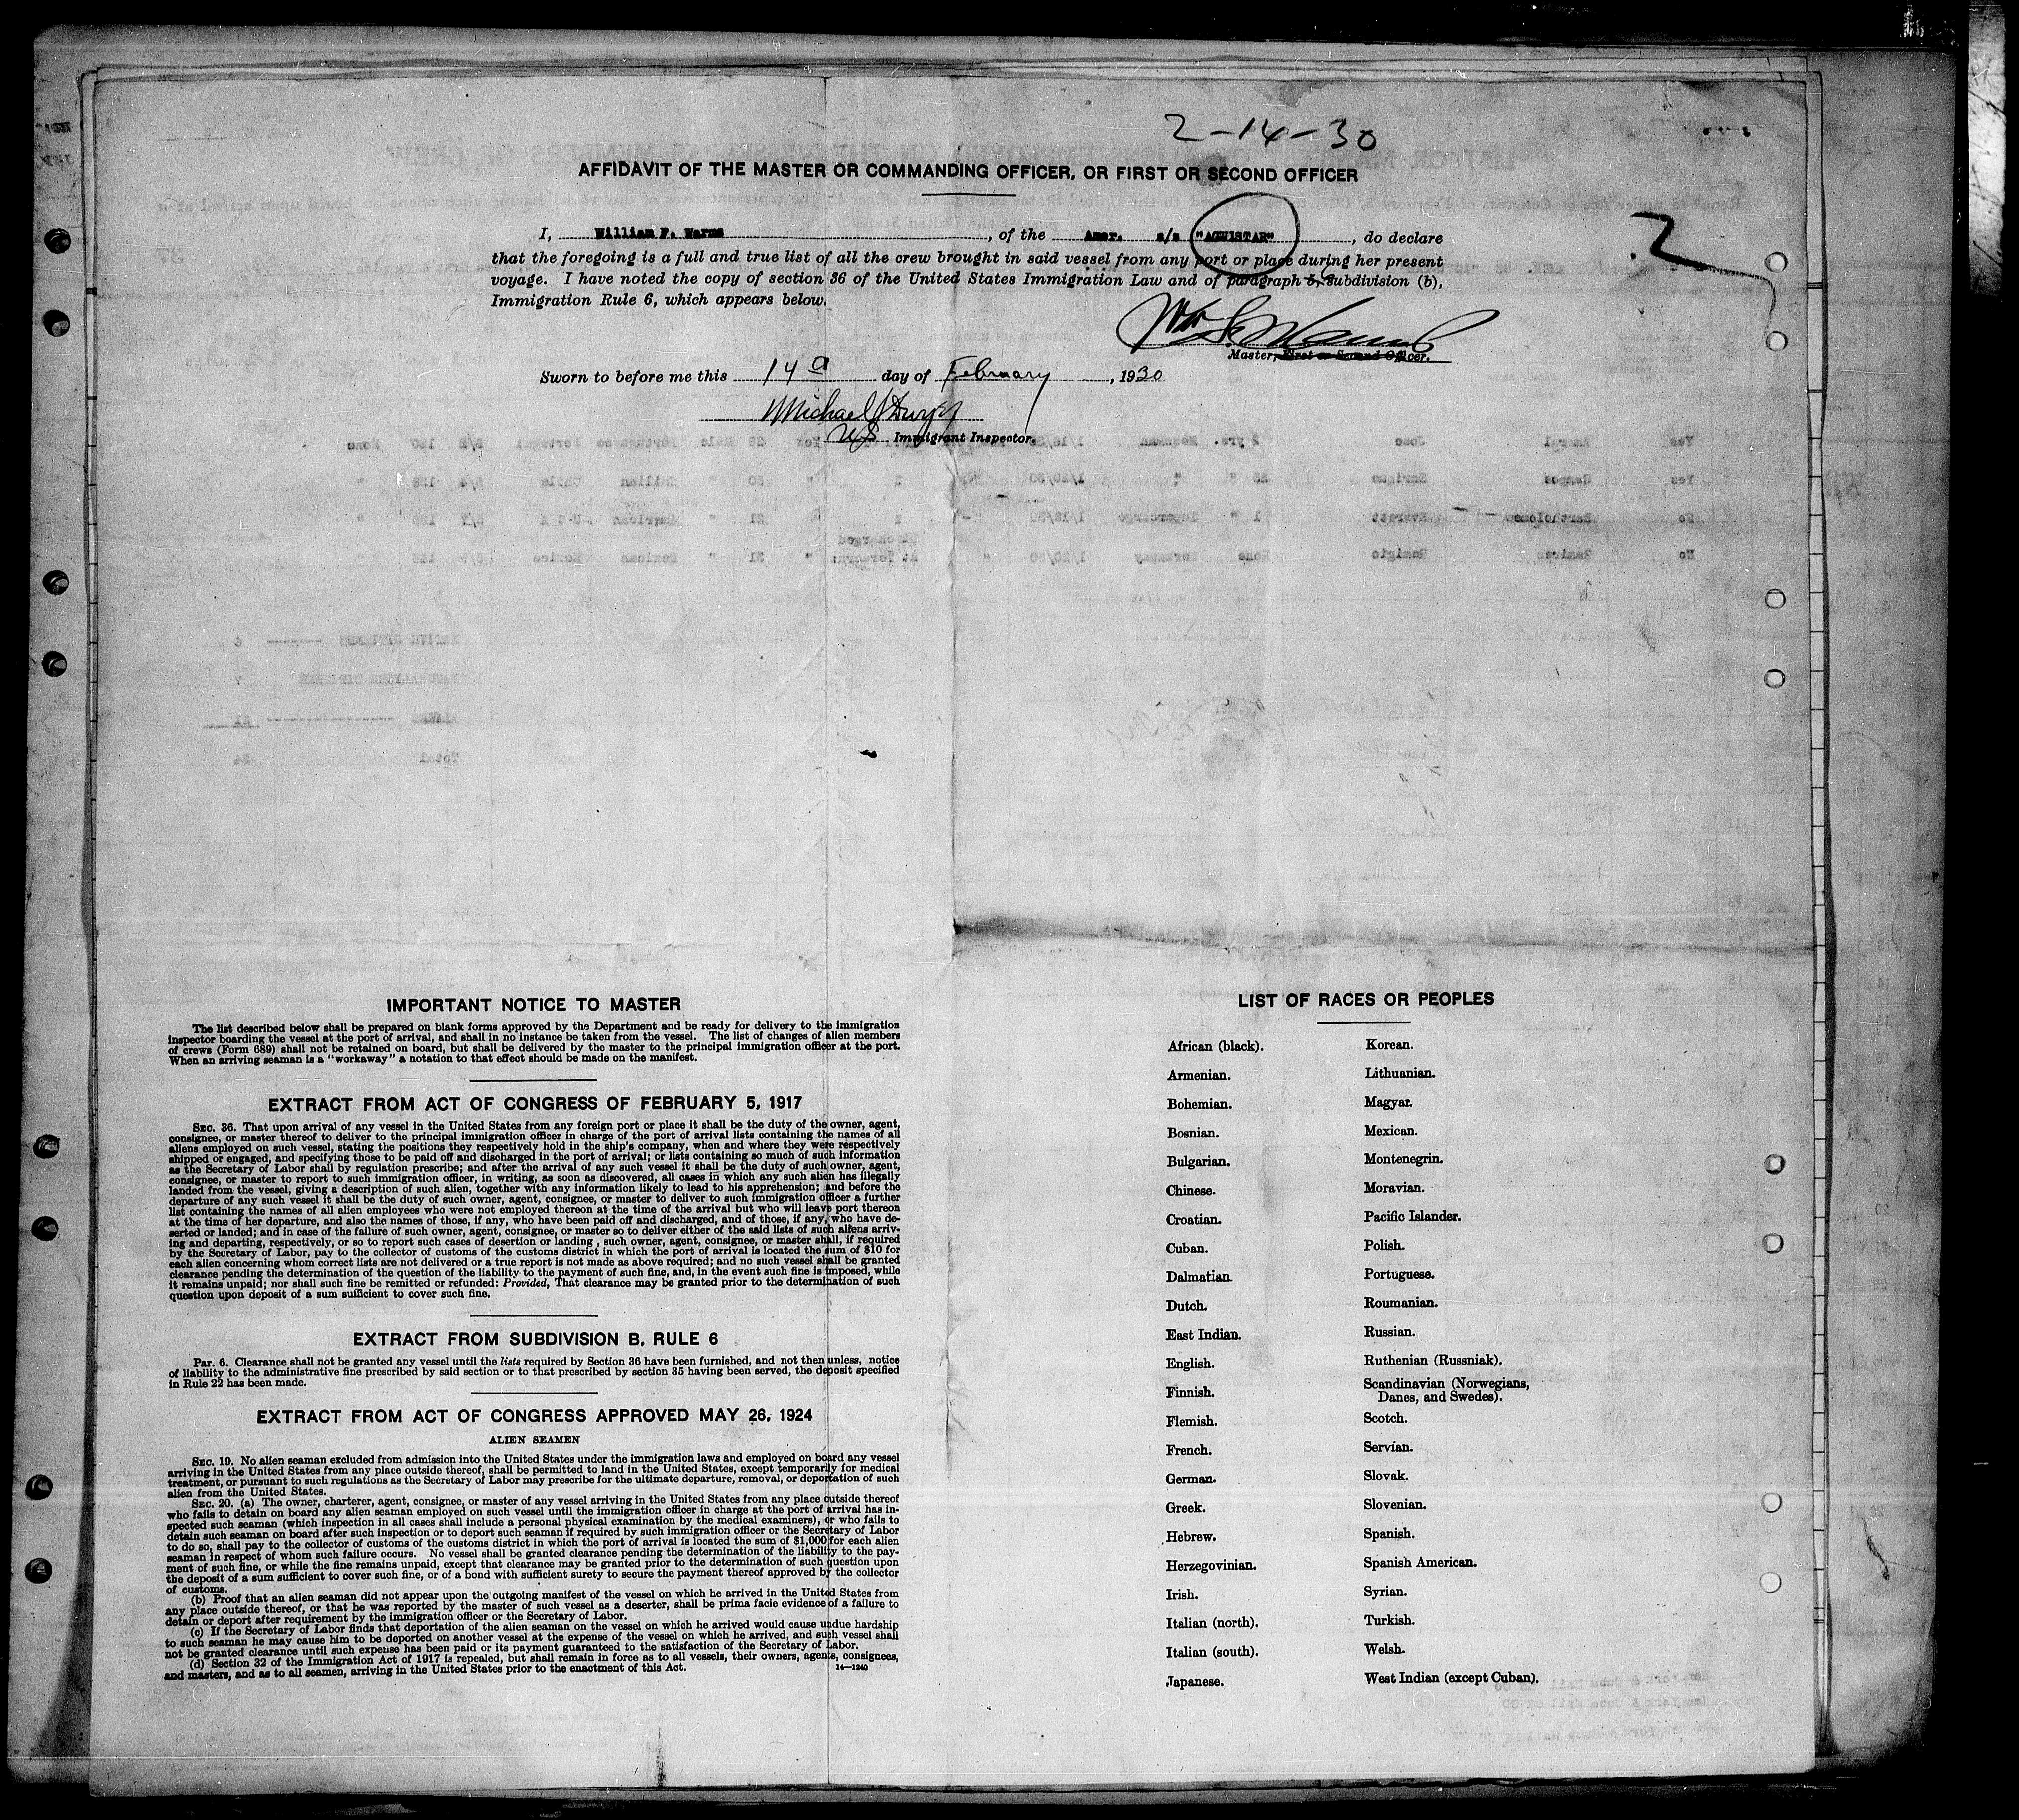 2-14-30
AFFIDAVIT OF THE MASTER OR COMMANDING OFFICER, OR FIRST OR SECOND OFFICER
2
I, William F. Warms, of the Amer. s/s "AGWISTAR", do declare
that the foregoing is a full and true list of all the crew brought in said vessel from any port or place during her present
voyage. I have noted the copy of section 36 of the United States Immigration Law and of paragraph 5, subdivision (b),
Immigration Rule 6, which appears below.
Master, First or Second Officer.
Sworn to before me this 14 day of February, 1930
Michael J
US Immigrant Inspector.
IMPORTANT NOTICE TO MASTER
The list described below shall be prepared on blank forms approved by the Department and be ready for delivery to the immigration
inspector boarding the vessel at the port of arrival, and shall in no instance be taken from the vessel. The list of changes of alien members
of crews (Form 689) shall not be retained on board, but shall be delivered by the master to the principal immigration officer at the port.
When an arriving seaman is a "workaway" a notation to that effect should be made on the manifest.
EXTRACT FROM ACT OF CONGRESS OF FEBRUARY 5, 1917
SEC. 36. That upon arrival of any vessel in the United States from any foreign port or place it shall be the duty of the owner, agent,
consignee, or master thereof to deliver to the principal immigration officer in charge of the port of arrival lists containing the names of all
aliens employed on such vessel, stating the positions they respectively hold in the ship's company, when and where they were respectively
shipped or engaged, and specifying those to be paid off and discharged in the port of arrival; or lists containing so much of such information
as the Secretary of Labor shall by regulation prescribe; and after the arrival of any such vessel it shall be the duty of such owner, agent,
consignee, or master to report to such immigration officer, in writing, as soon as discovered, all cases in which any such alien has illegally
landed from the vessel, giving a description of such alien, together with any information likely to lead to his apprehension; and before the
departure of any such vessel it shall be the duty of such owner, agent, consignee, or master to deliver to such immigration officer a further
list containing the names of all alien employees who were not employed thereon at the time of the arrival but who will leave port thereon
at the time of her departure, and also the names of those, if any, who have been paid off and discharged, and of those, if any, who have de-
serted or landed; and in case of the failure of such owner, agent, consignee, or master so to deliver either of the said lists of such aliens arriv-
ing and departing, respectively, or so to report such cases of desertion or landing, such owner, agent, consignee, or master shall, if required
by the Secretary of Labor, pay to the collector of customs of the customs district in which the port of arrival is located the sum of $10 for
each alien concerning whom correct lists are not delivered or a true report is not made as above required; and no such vessel shall be granted
clearance pending the determination of the question of the liability to the payment of such fine, and, in the event such fine is imposed, while
it remains unpaid; nor shall such fine be remitted or refunded: Provided, That clearance may be granted prior to the determination of such
question upon deposit of a sum sufficient to cover such fine.
EXTRACT FROM SUBDIVISION B, RULE 6
PAR. 6. Clearance shall not be granted any vessel until the lists required by Section 36 have been furnished, and not then unless, notice
of liability to the administrative fine prescribed by said section or to that prescribed by section 35 having been served, the deposit specified
in Rule 22 has been made.
EXTRACT FROM ACT OF CONGRESS APPROVED MAY 26, 1924
ALIEN SEAMEN
SEC. 19. No alien seaman excluded from admission into the United States under the immigration laws and employed on board any vessel
arriving in the United States from any place outside thereof, shall be permitted to land in the United States, except temporarily for medical
treatment, or pursuant to such regulations as the Secretary of Labor may prescribe for the ultimate departure, removal, or deportation of such
alien from the United States.
SEC. 20. (a) The owner, charterer, agent, consignee, or master of any vessel arriving in the United States from any place outside thereof
who fails to detain on board any alien seaman employed on such vessel until the immigration officer in charge at the port of arrival has in-
spected such seaman (which inspection in all cases shall include a personal physical examination by the medical examiners), or who fails to
detain such seaman on board after such inspection or to deport such seaman if required by such immigration officer or the Secretary of Labor
to do so, shall pay to the collector of customs of the customs district in which the port of arrival is located the sum of $1,000 for each alien
seaman in respect of whom such failure occurs. No vessel shall be granted clearance pending the determination of the liability to the pay-
ment of such fine, or while the fine remains unpaid, except that clearance may be granted prior to the determination of such question upon
the deposit of a sum sufficient to cover such fine, or of a bond with sufficient surety to secure the payment thereof approved by the collector
of customs.
(b) Proof that an alien seaman did not appear upon the outgoing manifest of the vessel on which he arrived in the United States from
any place outside thereof, or that he was reported by the master of such vessel as a deserter, shall be prima facie evidence of a failure to
detain or deport after requirement by the immigration officer or the Secretary of Labor.
(c) If the Secretary of Labor finds that deportation of the alien seaman on the vessel on which he arrived would cause undue hardship
to such seaman he may cause him to be deported on another vessel at the expense of the vessel on which he arrived, and such vessel shall
not be granted clearance until such expense has been paid or its payment guaranteed to the satisfaction of the Secretary of Labor.
(d) Section 32 of the Immigration Act of 1917 is repealed, but shall remain in force as to all vessels, their owners, agents, consignees,
and masters, and as to all seamen, arriving in the United States prior to the enactment of this Act.
14—1240
LIST OF RACES OR PEOPLES
African (black).
Armenian.
Bohemian.
Bosnian.
Bulgarian.
Chinese.
Croatian.
Cuban.
Dalmatian.
Dutch.
East Indian.
English.
Finnish.
Flemish.
French.
German.
Greek.
Hebrew.
Herzegovinian.
Irish.
Italian (north).
Italian (south).
Japanese.
Korean.
Lithuanian.
Magyar.
Mexican.
Montenegrin.
Moravian.
Pacific Islander.
Polish.
Portuguese.
Roumanian.
Russian.
Ruthenian (Russniak).
Scandinavian (Norwegians,
Danes, and Swedes).
Scotch.
Servian.
Slovak.
Slovenian.
Spanish.
Spanish American.
Syrian.
Turkish.
Welsh.
West Indian (except Cuban).